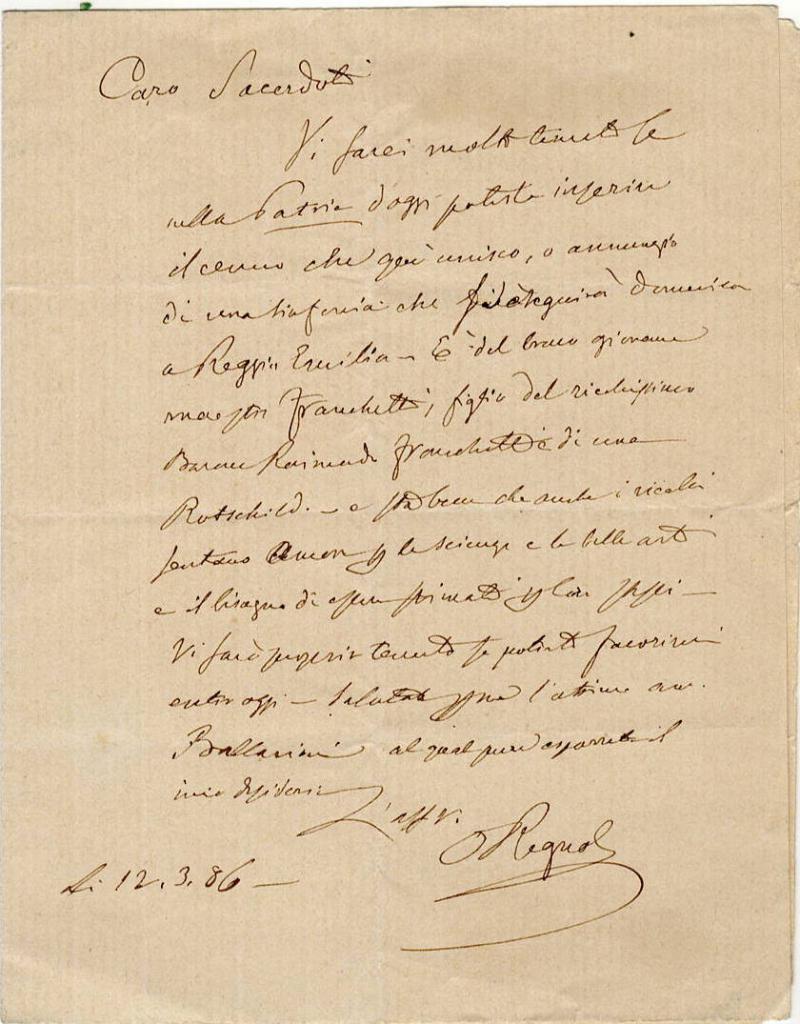 Caro Sacerdoti
Vi sarei molto tenuto se
nella Patria d'oggi poteste inserire
il cenno che qui unisco, o annunzio
di una sinfonia che si eseguirà domenica
a Reggio Emilia - È del bravo giovane
maestro Franchetti, figlio del ricchissimo
Barone Raimondo Franchetti e di una
Rotschild. - e sta bene che anche i ricchi
sentano amor p le scienze e le belle arti
e il bisogno di essere stimati p loro stessi -
Vi sarò proprio tenuto se potrete favorirmi
entro oggi - Salutate p me l'ottimo avv.
Ballarini al qual pure esporrete il
mio desiderio
L'aff.
Li 12.3.86 -